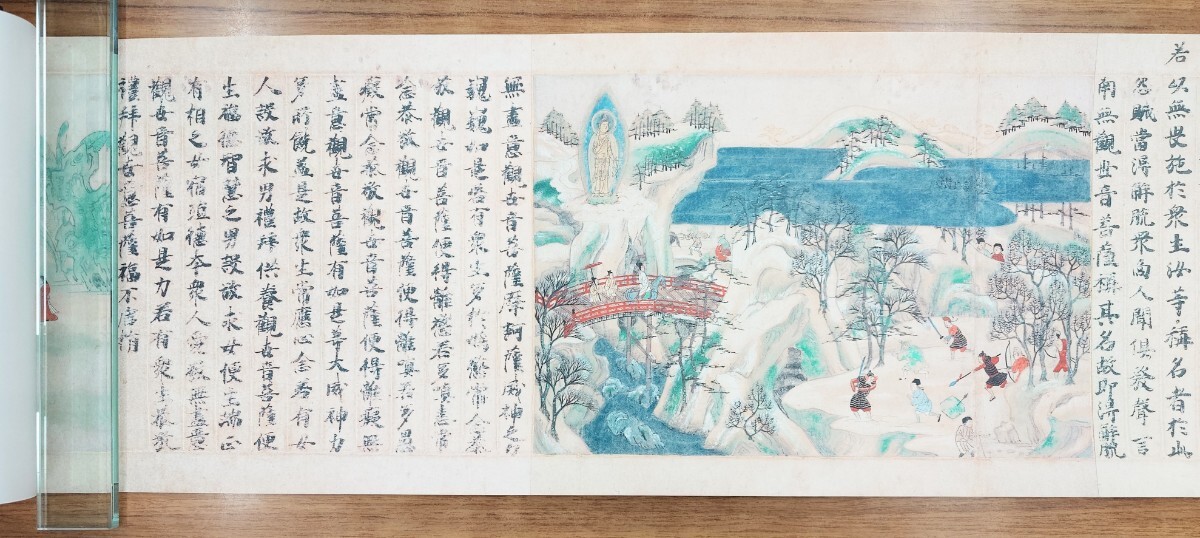 若以無畏施於衆生汝等稱名者於此
怨賊當得解脱衆商人聞俱發聲言
南無觀世音菩薩稱其名故即得解脱
無盡意觀世音菩薩摩訶薩威神之力
巍巍如是若有衆生多於婬慾常念恭
敬觀世音菩薩便得離慾若多瞋恚常
念恭敬觀世音菩薩便得離瞋若多愚
癡常念恭敬觀世音菩薩便得離癡無
盡意觀世音菩薩有如是等大威神力
多所饒益是故衆生常應心念若有女
人設欲求男禮拜供養觀世音菩薩便
生福德智慧之男設欲求女便生端正
有相之女宿殖德本衆人愛敬無盡意
觀世音菩薩有如是力若有衆生恭敬
禮拜觀世音菩薩福不唐捐